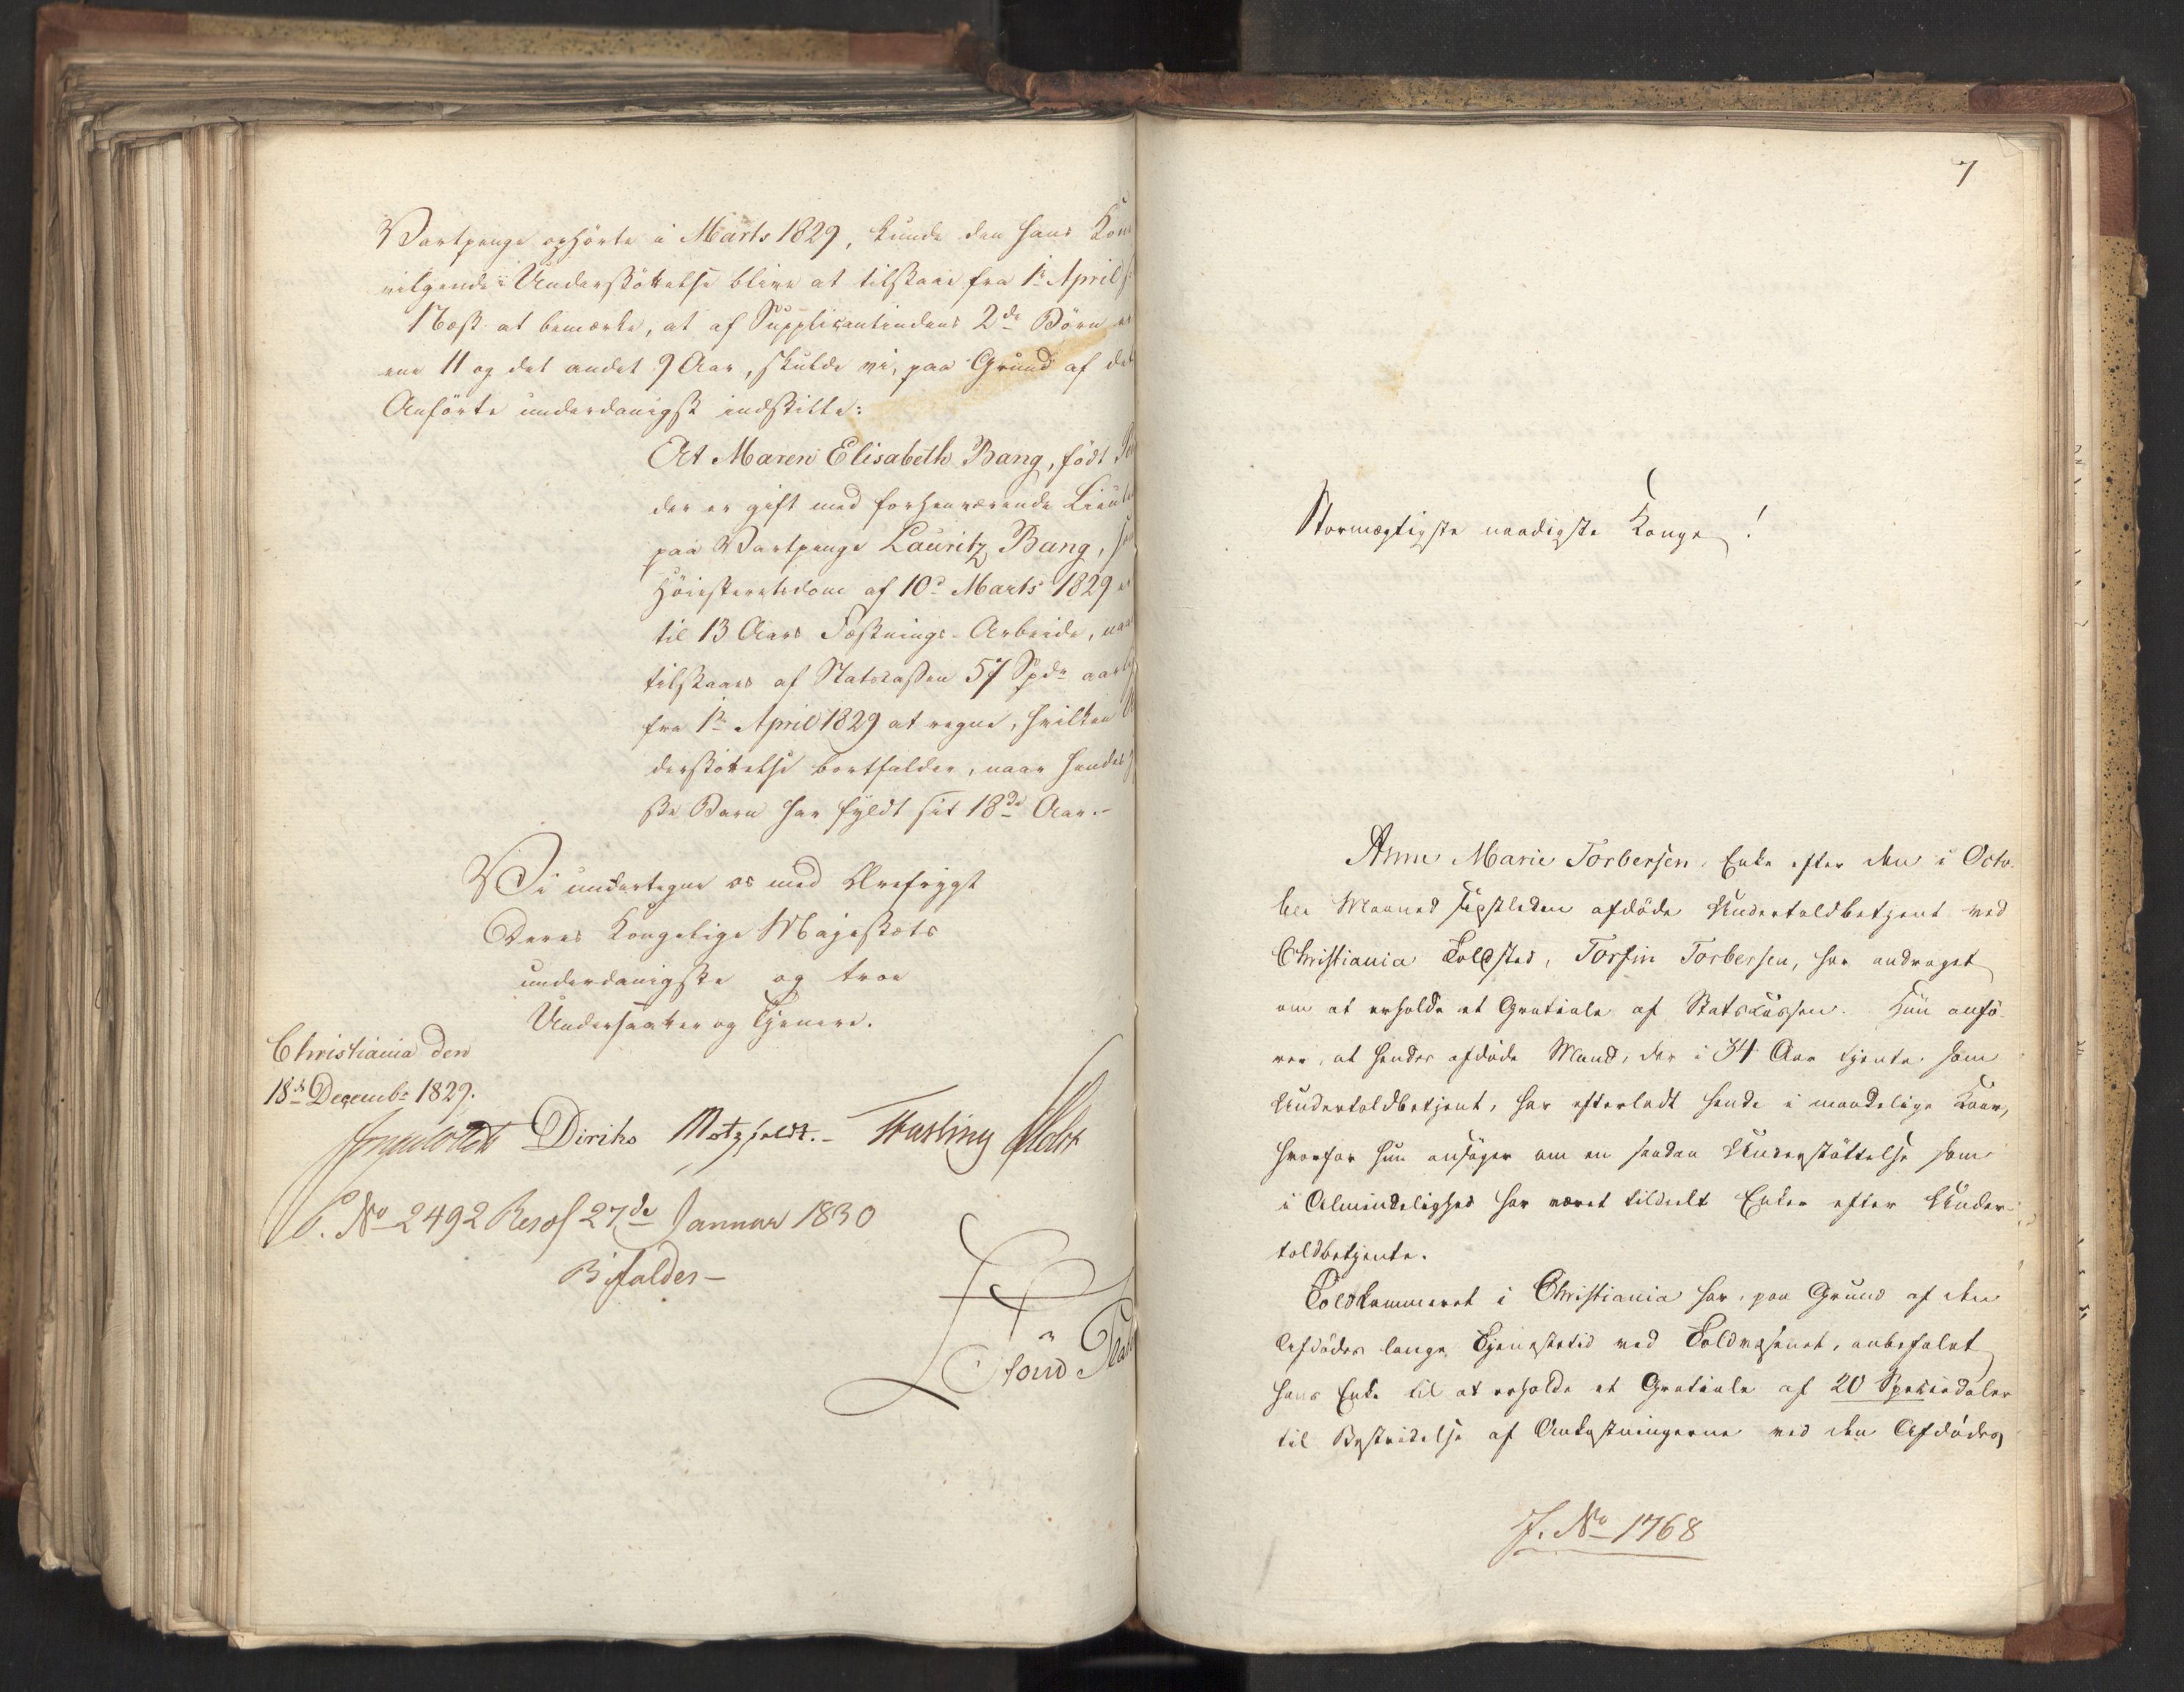 Vartpenge ophörte i Marts 1829, kunde den hans Kone
vilgende Understöttelse blive at tilstaae fra 1te April
Næst at bemærke, at af Supplicantindens 2de Börn er
ene 11 og det andet 9 Aar, skulde vi, paa Grund af det
Anförte underdanigst indstille:
At Maren Elisabeth Bang, födt
der er gift med forhenværende Lieut
paa Vartpenge Lauritz Bang,
Höiesteretsdom af 10de Marts 1829
til 13 Aars Fæstnings-Arbeide, naad
tilstaaes af Statscassen 57 Spdr aarlig
fra 1te April 1829 at regne, hvilken Un
derstöttelse bortfalder, naar hendes
ste Barn har fyldt sit 18de Aar.-
Vi undertegne os med Ærefrygt
Deres Kongelige Majestæts
underdanigste og troe
Undersaatter og Tjenere.
Christiania den
18de Decembr 1829.
Diriks Motzfeldt.- Fasting Holst
P. No 2492 Resol 27de Januar 1830
Bifaldes-
7
Stormægtigste naadigste Konge!
Anne Marie Torbersen, Enke efter den i Octo-
ber Maaned sidstleden afdöde Undertoldbetjent ved
Christiania Toldsted, Torfin Torbersen, har andraget
om at erholde et Gratiale af Statskassen. Hun anfö-
rer, at hendes afdöde Mand, der i 34 Aar tjente som
Undertoldbetjent, har efterladt hende i maadelige Kaar,
hvorfor hun ansöger om en saadan Understöttelse som
i Almindelighed har været tildeelt Enker efter Under-
toldbetjente.
Toldkammeret i Christiania har, paa Grund af den
Afdödes lange Tjenestetid ved Toldvæsenet, anbefalet
hans Enke til at erholde et Gratiale af 20 Speciedaler
til Bestridelse af Omkostningerne ved den Afdödes
J. No 1768